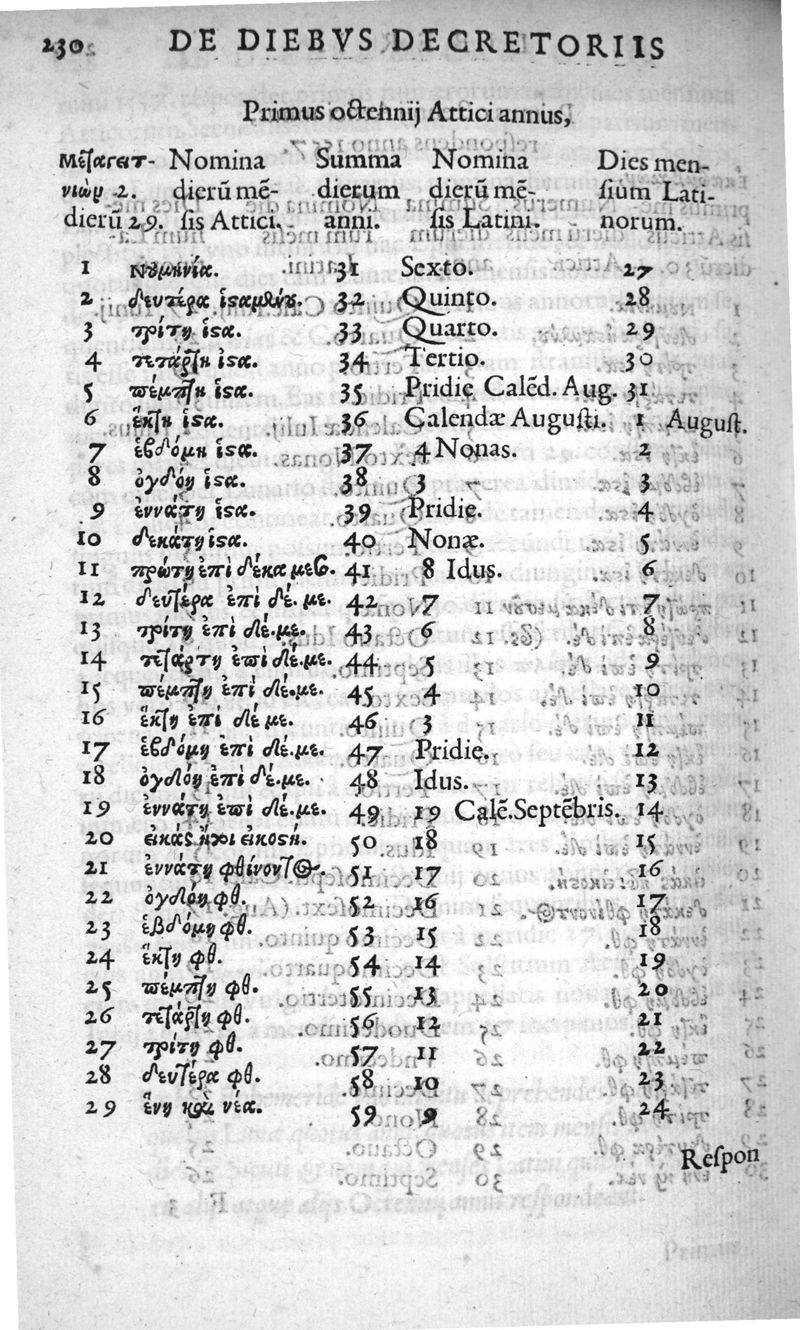 230 DE DIEBVS DECRETORIIS
Primus octennij Attici annus,
Μεταγειτ- Nomina Summa Nomina Dies men-
νιὼν 2. dierū mē- dierum dierū mē- ſium Lati-
dierū 29. ſis Attici. anni. ſis Latini. norum.
1 νουμηνία. 31 Sexto. 27
2 δευτέρα ἱσαμένου. 32 Quinto. 28
3 τρίτη ἱσα. 33 Quarto. 29
4 τετάρτη ἱσα. 34 Tertio. 30
5 πέμπτη ἱσα. 35 Pridie Calēd. Aug. 31
6 ἕκτη ἱσα. 36 Calendæ Auguſti. 1 Auguſt.
7 ἑβδόμη ἱσα. 37 4 Nonas. 2
8 ὀγδόη ἱσα. 38 3 3
9 ἐννάτη ἱσα. 39 Pridie. 4
10 δεκάτη ἱσα. 40 Nonæ. 5
11 πρώτη ἐπὶ δέκα μεσ. 41 8 Idus. 6
12 δευτέρα ἐπὶ δέ. με. 42 7 7
13 τρίτη ἐπὶ δέ. με. 43 6 8
14 τετάρτη ἐπὶ δέ. με. 44 5 9
15 πέμπτη ἐπὶ δέ. με. 45 4 10
16 ἕκτη ἐπὶ δέ με. 46 3 11
17 ἑβδόμη ἐπὶ δέ. με. 47 Pridie. 12
18 ὀγδόη ἐπὶ δέ. με. 48 Idus. 13
19 ἐννάτη ἐπὶ δέ. με. 49 19 Calē. Septēbris. 14
20 εἰκὰς ἤχι εἰκοστή. 50 18 15
21 ἐννάτη φθίνοντος. 51 17 16
22 ὀγδόη φθ. 52 16 17
23 ἑβδόμη φθ. 53 15 18
24 ἕκτη φθ. 54 14 19
25 πέμπτη φθ. 55 13 20
26 τετάρτη φθ. 56 12 21
27 τρίτη φθ. 57 11 22
28 δευτέρα φθ. 58 10 23
29 ἕνη καὶ νέα. 59 9 24
Reſpon